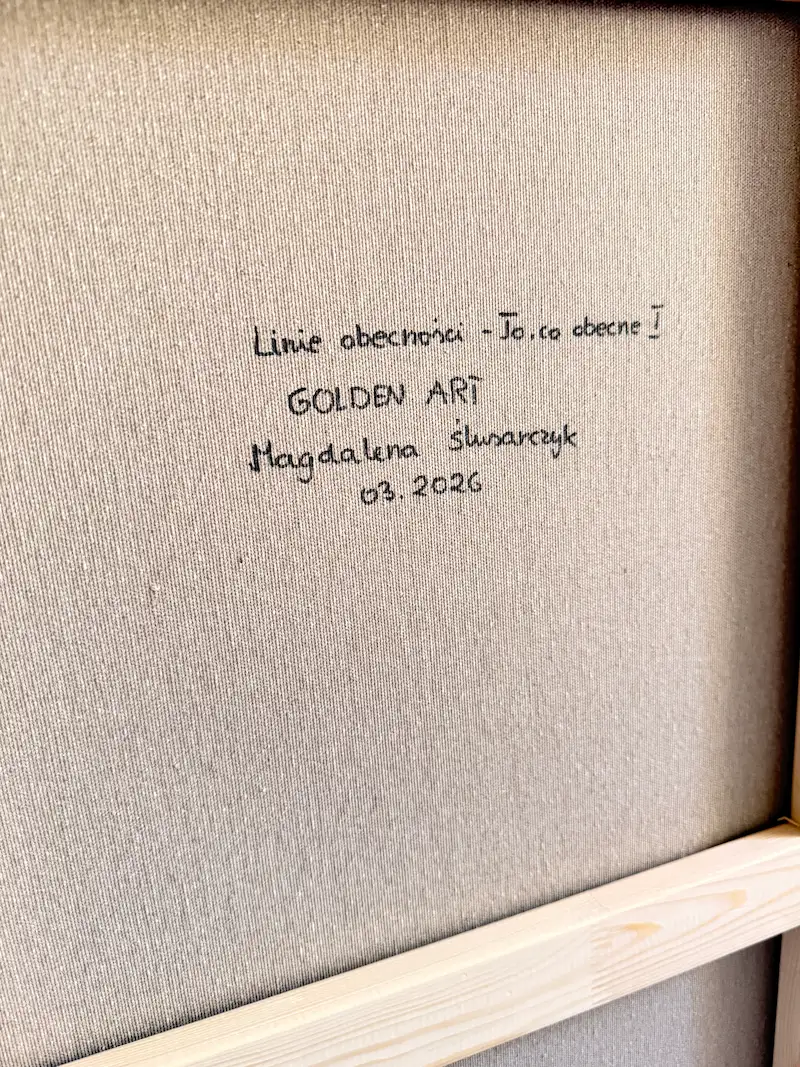 Linie obecności - To, co obecne I
GOLDEN ART
Magdalena Ślusarczyk
03.2026